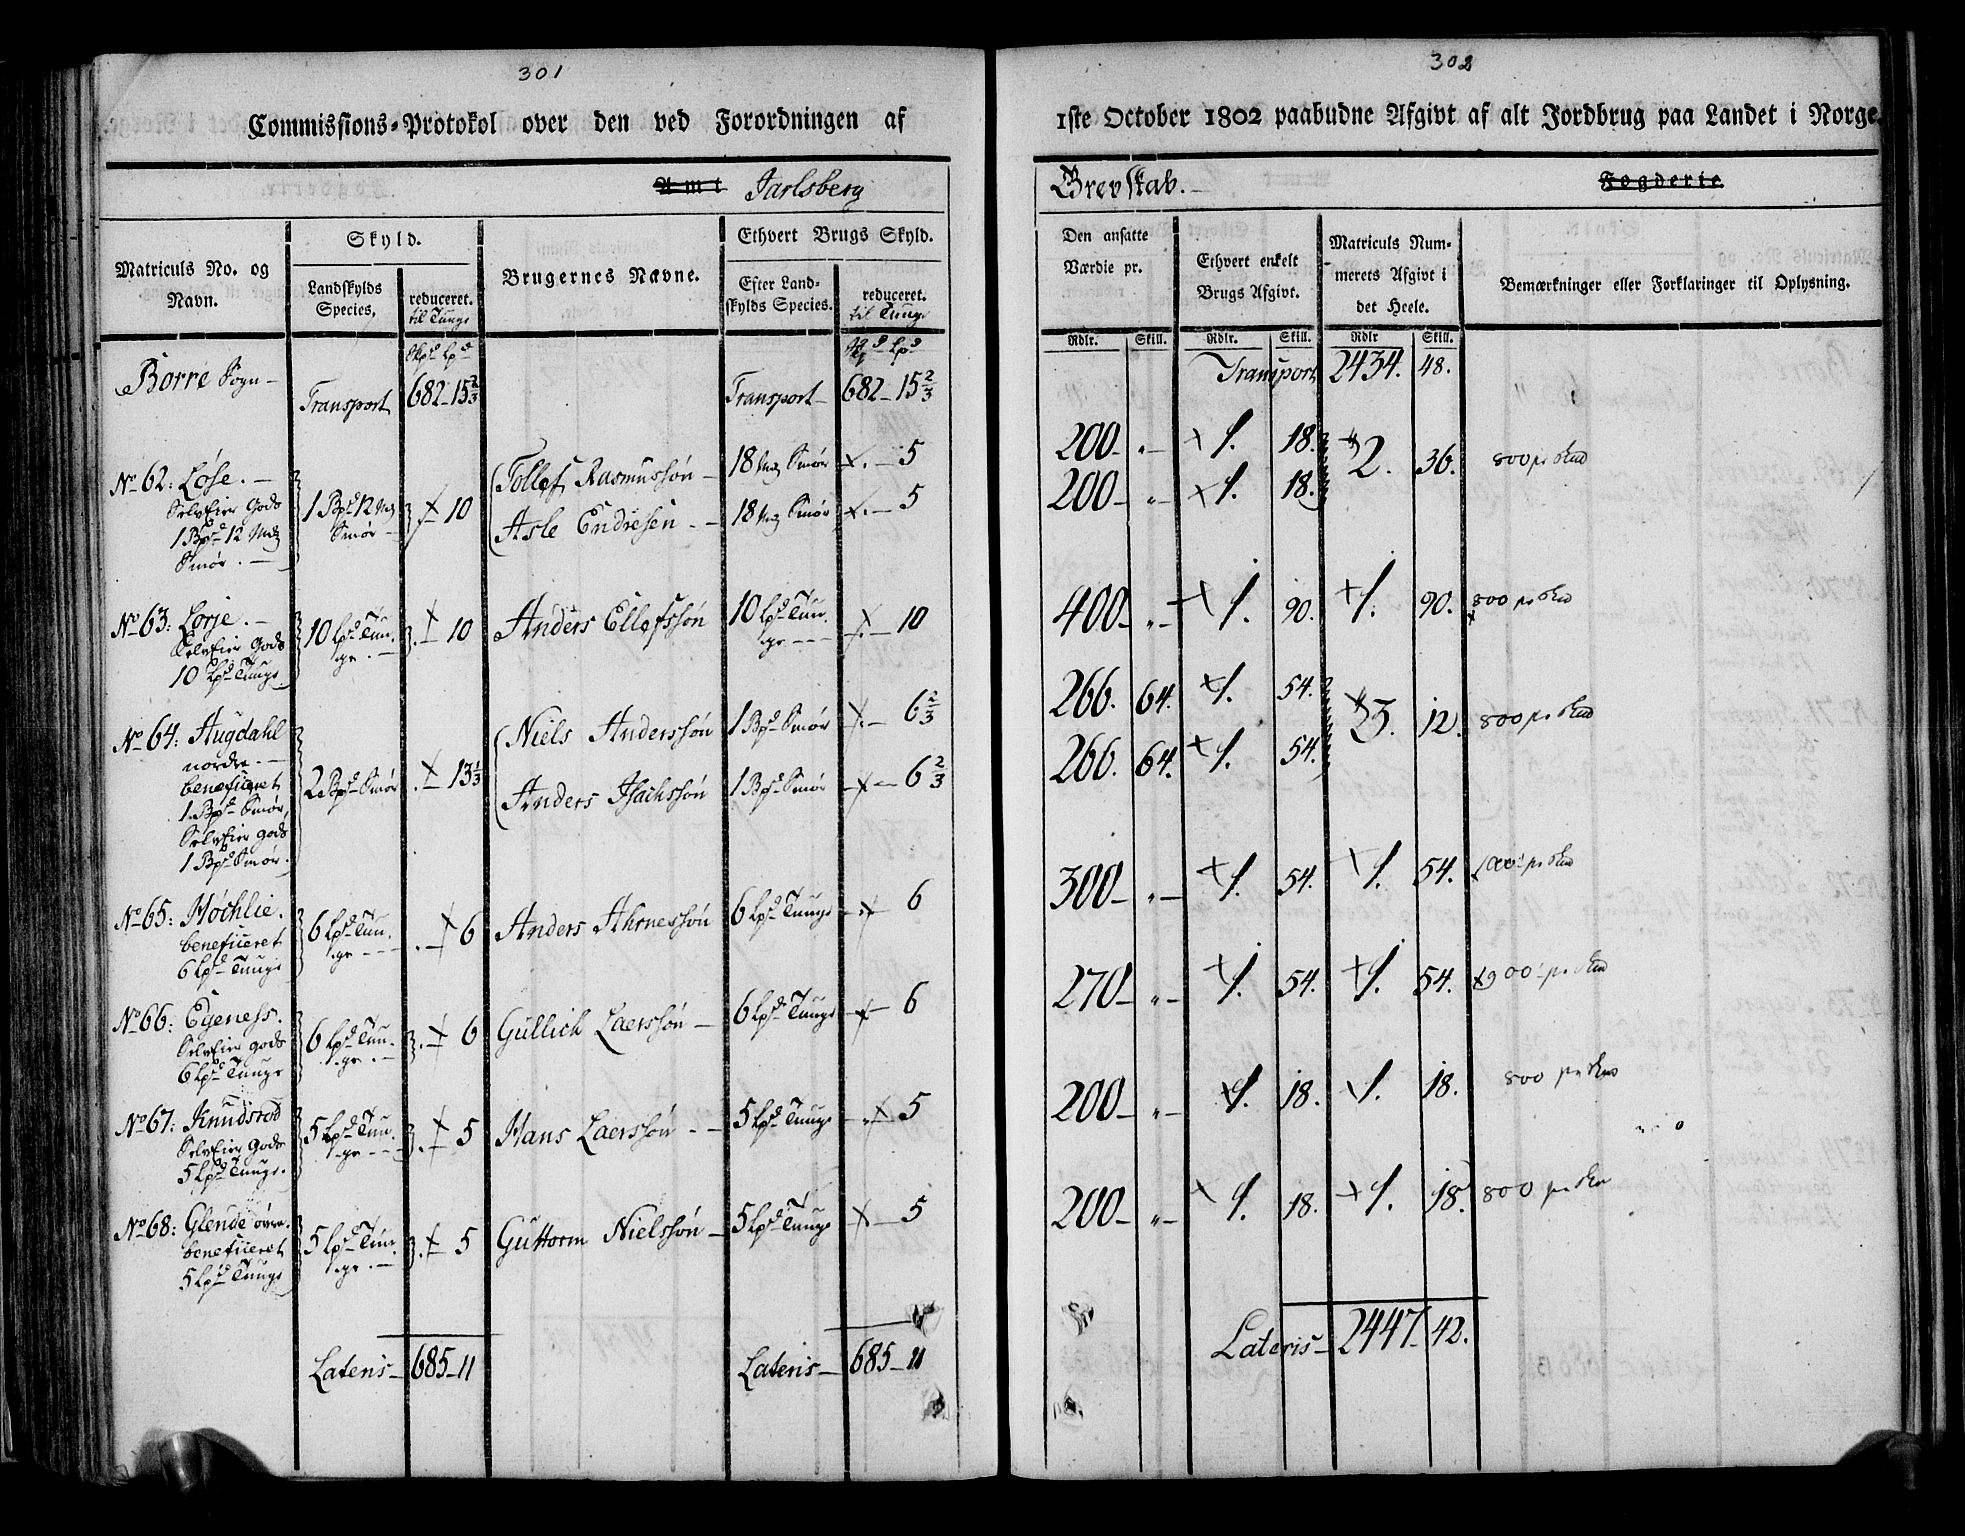 301
Commissions-Protokol over den ved Forordningen af
Amt Jarlsberg
Matriculs No. og Navn.
Skyld.
Landskylds Species.
reduceret. til Tunge
Brugernes Navne.
Ethvert Brugs Skyld.
Efter Landskylds Species.
reduceret. til Tunge
Borre Sogn - Transport 682 - 15 2/3 Transport - 682 - 15 2/3
No 62: Løse. - 1 Bpd 12 Mrk Smør 10 Tollef Rasmussøn - 18 Mrk Smør 5
Selveier Gods Asle Endresen - 18 Mrk Smør 5
1 Bpd 12 Mrk
Smør. -
No 63: Lorje. - 10 Lpd Tunge 10 Anders Ellefssøn 10 Lpd Tunge 10
Selveier Gods
10 Lpd Tunge
No 64: Augdahl 2 Bpd Smør 13 1/3 Niels Anderssøn 1 Bpd Smør 6 2/3
nordre. - Anders Isachssøn 1 Bpd Smør 6 2/3
beneficeret
1 Bpd Smør,
Selveier Gods
1 Bpd Smør.
No 65: Høchlie. 6 Lpd Tunge 6 Anders Ahrnessøn 6 Lpd Tunge 6
beneficeret
6 Lpd Tunge
No 66: Egeness. 6 Lpd Tunge 6 Gullich Laerssøn - 6 Lpd Tunge 6
Selveier Gods
6 Lpd Tunge
No 67: Knudsrød 5 Lpd Tunge 5 Hans Laerssøn - 5 Lpd Tunge 5
Selveier Gods
5 Lpd Tunge.
No 68: Glende øvre. 5 Lpd Tunge 5 Guttorm Nielssøn - 5 Lpd Tunge 5
beneficeret
5 Lpd Tunge
Lateris - 685 - 11 Lateris - 685 - 11
302
1ste October 1802 paabudne Afgivt af alt Jordbrug paa Landet i Norge.
Grevskab. - Fogderie.
Den ansatte Værdie pr.
Ethvert enkelt Brugs Afgivt.
Matriculs Nummerets Afgivt i det Heele.
Bemærkninger eller Forklaringer til Oplysning.
Rdlr. Skill. Rdlr. Skill. Rdlr Skill.
Transport 2434. 48.
200 - 1. 18. 2. 36. 800
200 - 1. 18.
400 - 1. 90. 1. 90. 800
266. 64. 1. 54. 3. 12. 800
266. 64. 1. 54.
300 - 1. 54. 1. 54.
270 - 1. 54. 1. 54. 900
200 - 1. 18. 1. 18. 800
200 - 1. 18. 1. 18. 800
Lateris - 2447 - 42.